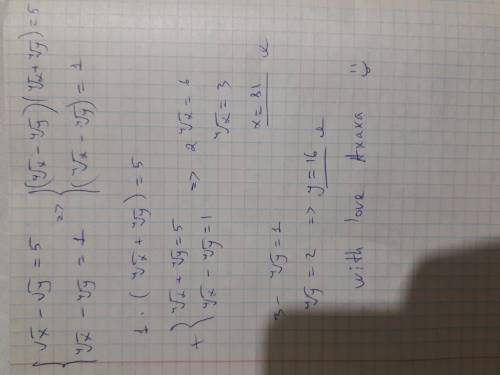 { √x - √y = 5 => { (⁴√x - ⁴√y)(⁴√x + ⁴√y) = 5
{ ⁴√x - ⁴√y = 1 { (⁴√x - ⁴√y) = 1
1 · (⁴√x + ⁴√y) = 5
+ { ⁴√x + ⁴√y = 5 => 2 ⁴√x = 6
{ ⁴√x - ⁴√y = 1 ⁴√x = 3
x = 81 и
3 - ⁴√y = 1
⁴√y = 2 => y = 16 и
with love Axaxa